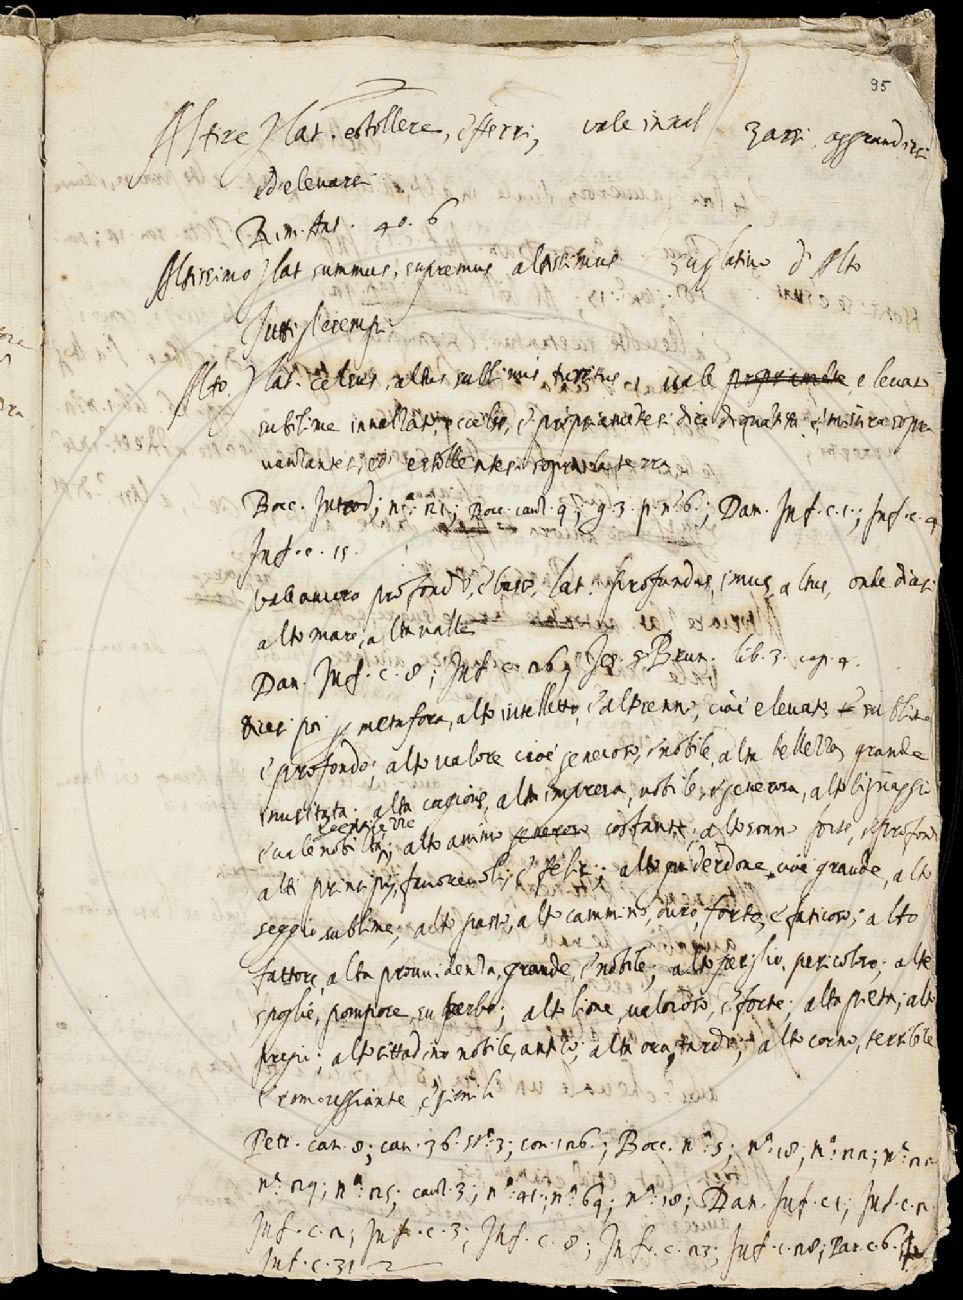 95
Altire Lat. estollere, efferri, vale innal zarsi, aggrandirsi
ed elevarsi
Rim. Ant. 40. 6
Altissimo Lat summus, supremus altissimus d'Alto
Tutti gl'esempi
Alto. Lat. celsus, altus, sublimis, vale propriamente elevato
sublime innalzato, eccelso, e propriamente si dice di quantità, e misura sopra
la terra
Bocc. Introd; n.º 21; Bocc. canz. 9; g. 3. p. n. 6.; Dan. Inf. c. 1; Inf. c. 4
Inf. c. 15.
vale ancora profondo, e basso, lat. profundus, imus, altus, onde diasi
alto mare, alta valle
Dan. Inf. c. 8; Inf. c. 26; Brun. lib. 3. cap. 4.
dicesi poi metafora, alto intelletto, e altre, cioè elevato e sublime
e profondo; alto valore cioè generoso, e nobile, alta bellezza, grande
alta cagione, alta impresa, nobile, e generosa, alto lignaggio
e vale nobiltà, alto animo generoso costante; alto sonno forte, e profondo
alti principij, favorevoli, e felici; alto guiderdone, cioè grande, alto
seggio sublime; alto passo, alto cammino, duro, forte, e faticoso; alto
fattore, alta provvidenza, grande, e nobile; alto periglio, pericoloso; alte
spoglie, pompose, superbe; alto lione, valoroso, e forte; alta pieta; alti
pregi; alto cittadino nobile, antico; alta ora, tarda; alto corno, terribile
e romoreggiante, e simili
Petr. can. 8; can. 36. 3; con. 126; Bocc. n.º 5; n.º 18; n.º 22; n.º
n.º 29; n.º 25; canz. 3; n.º 41; n.º 69; n.º 18; Dan. Inf. c. 1; Inf. c. 2
Inf. c. 2; Inf. c. 3; Inf. c. 8; Inf. c. 23; Inf. c. 28; Par. c. 6.
Inf. c. 31